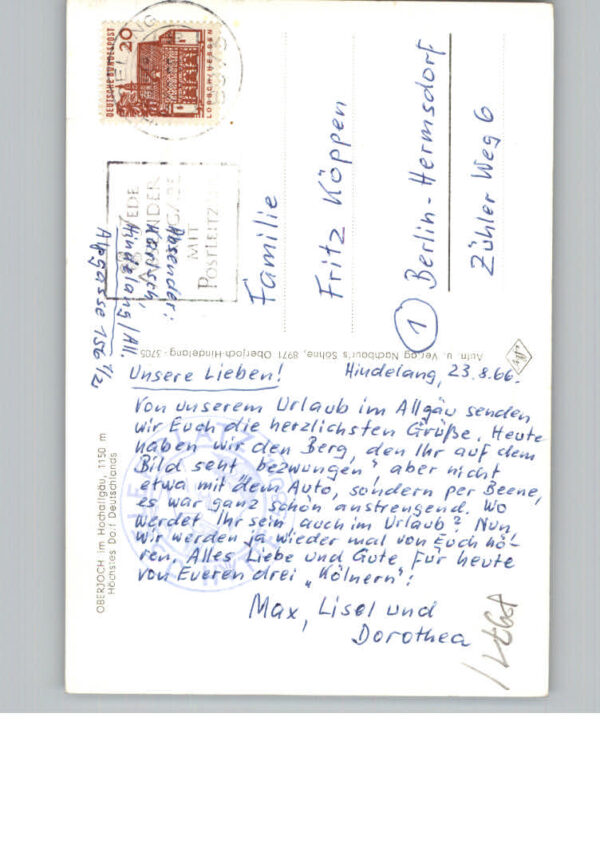 DEUTSCHE BUNDESPOST
20
LORSCH/HESSEN
MIT
POSTLEITZ
Absender:
Hindelang/All.
Alpgasse 156 1/2
Familie
Fritz Köppen
1 Berlin-Hermsdorf
Zühler Weg 6
Aufn. u. Verlag Nachbour's Söhne, 8971 Oberjoch-Hindelang - 3705
OBERJOCH im Hochallgäu, 1150 m
Höchstes Dorf Deutschlands
Unsere Lieben! Hindelang, 23.8.66.
Von unserem Urlaub im Allgäu senden
wir Euch die herzlichsten Grüße. Heute
haben wir den Berg, den Ihr auf dem
Bild seht „bezwungen", aber nicht
etwa mit dem Auto, sondern per Beene,
es war ganz schön anstrengend. Wo
werdet Ihr sein, auch im Urlaub? Nun,
wir werden ja wieder mal von Euch hö-
ren. Alles Liebe und Gute, für heute
von Eueren drei „Kölnern":
Max, Lisel und
Dorothea